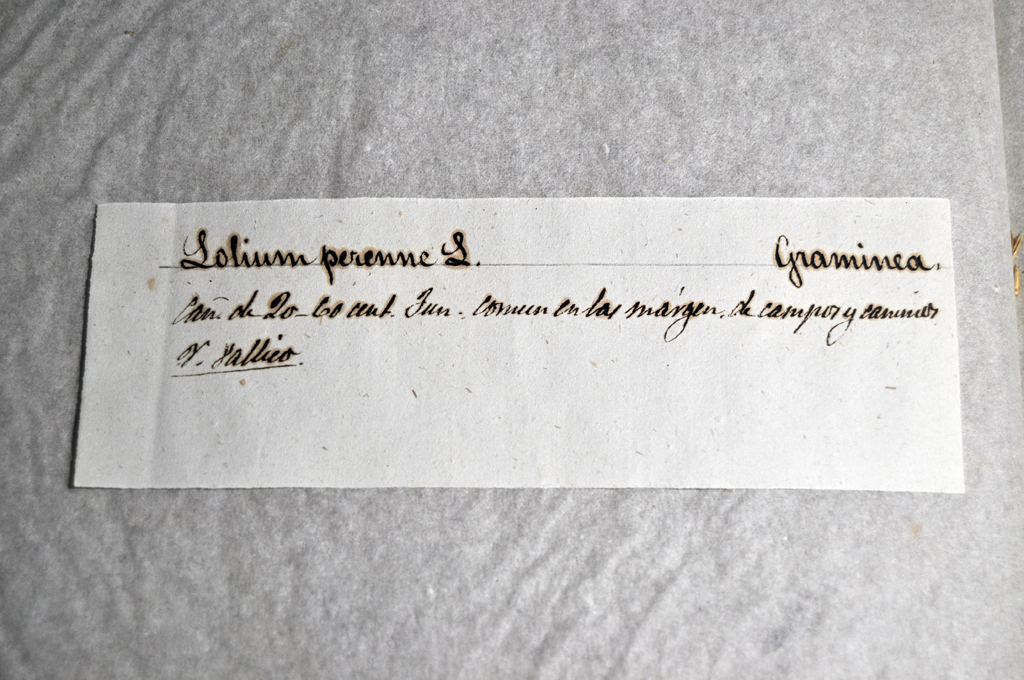 Lolium perenne L. Graminea.
Cañ. de 20-60 cent. Jun. comun en las márgen. de campos y caminos
V. Vallico.